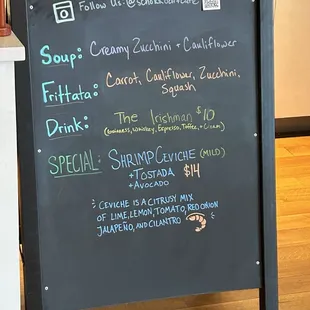 Follow Us:
Soup: Creamy Zucchini + Cauliflower
Frittata: Carrot, Cauliflower, Zucchini,
Squash
Drink: The Irishman $10
(Guinness, Whiskey, Espresso, Toffee, + Cream)
SPECIAL: SHRIMP CEVICHE (MILD)
+ TOSTADA $14
+ AVOCADO
CEVICHE IS A CITRUSY MIX
OF LIME, LEMON, TOMATO, RED ONION
JALAPEÑO, AND CILANTRO